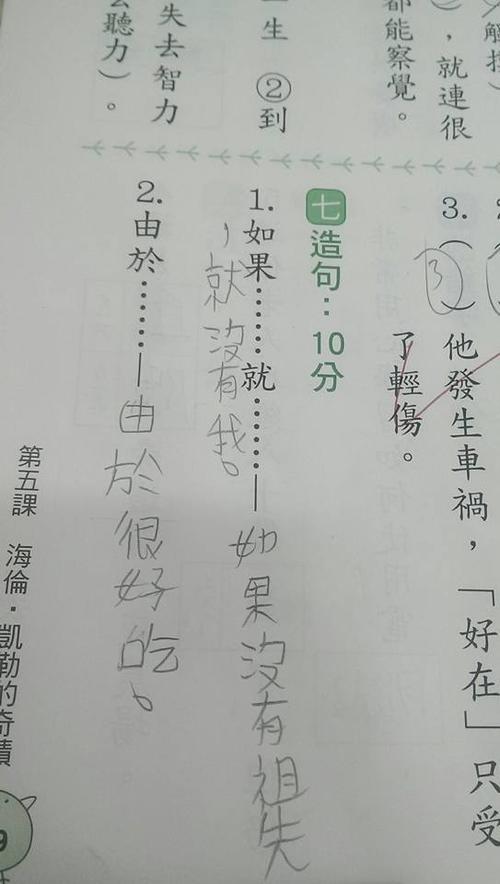 ），就連很
都能察覺。
一生 ②到
失去智力
聽力）。
3.（B）他發生車禍，「好在」只受
了輕傷。
七 造句：10分
1. 如果………就………—如果沒有祖失
，就沒有我。
2. 由於………—由於很好吃。
第五課 海倫．凱勒的奇蹟
9